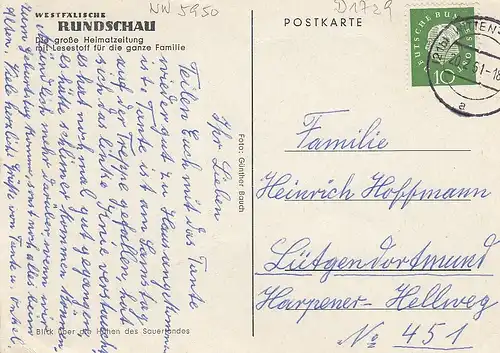 NW 5950
D1729
WESTFÄLISCHE
RUNDSCHAU
Die große Heimatzeitung
mit Lesestoff für die ganze Familie
POSTKARTE
DEUTSCHE BUNDESPOST
10
(21b)
20.
61-18
a
Ihr Lieben
Teilen Euch mit das Tante
wieder gut zu Haus angekommen
ist. Tante ist am Samstag
auf der Treppe gefallen hat
sich das linke Knie verstaucht
es hat noch mal gut gegangen
es hätte schlimmer kommen können.
Mündlich mehr darüber wenn wir
zum Geburtstag kommen sonst noch alles beim
Alten. Viele herzliche Grüße von Tante u. Onkel
Foto: Günther Bauch
Blick über die Höhen des Sauerlandes
Familie
Heinrich Hoffmann
Lütgendortmund
Harpener-Hellweg
No 451